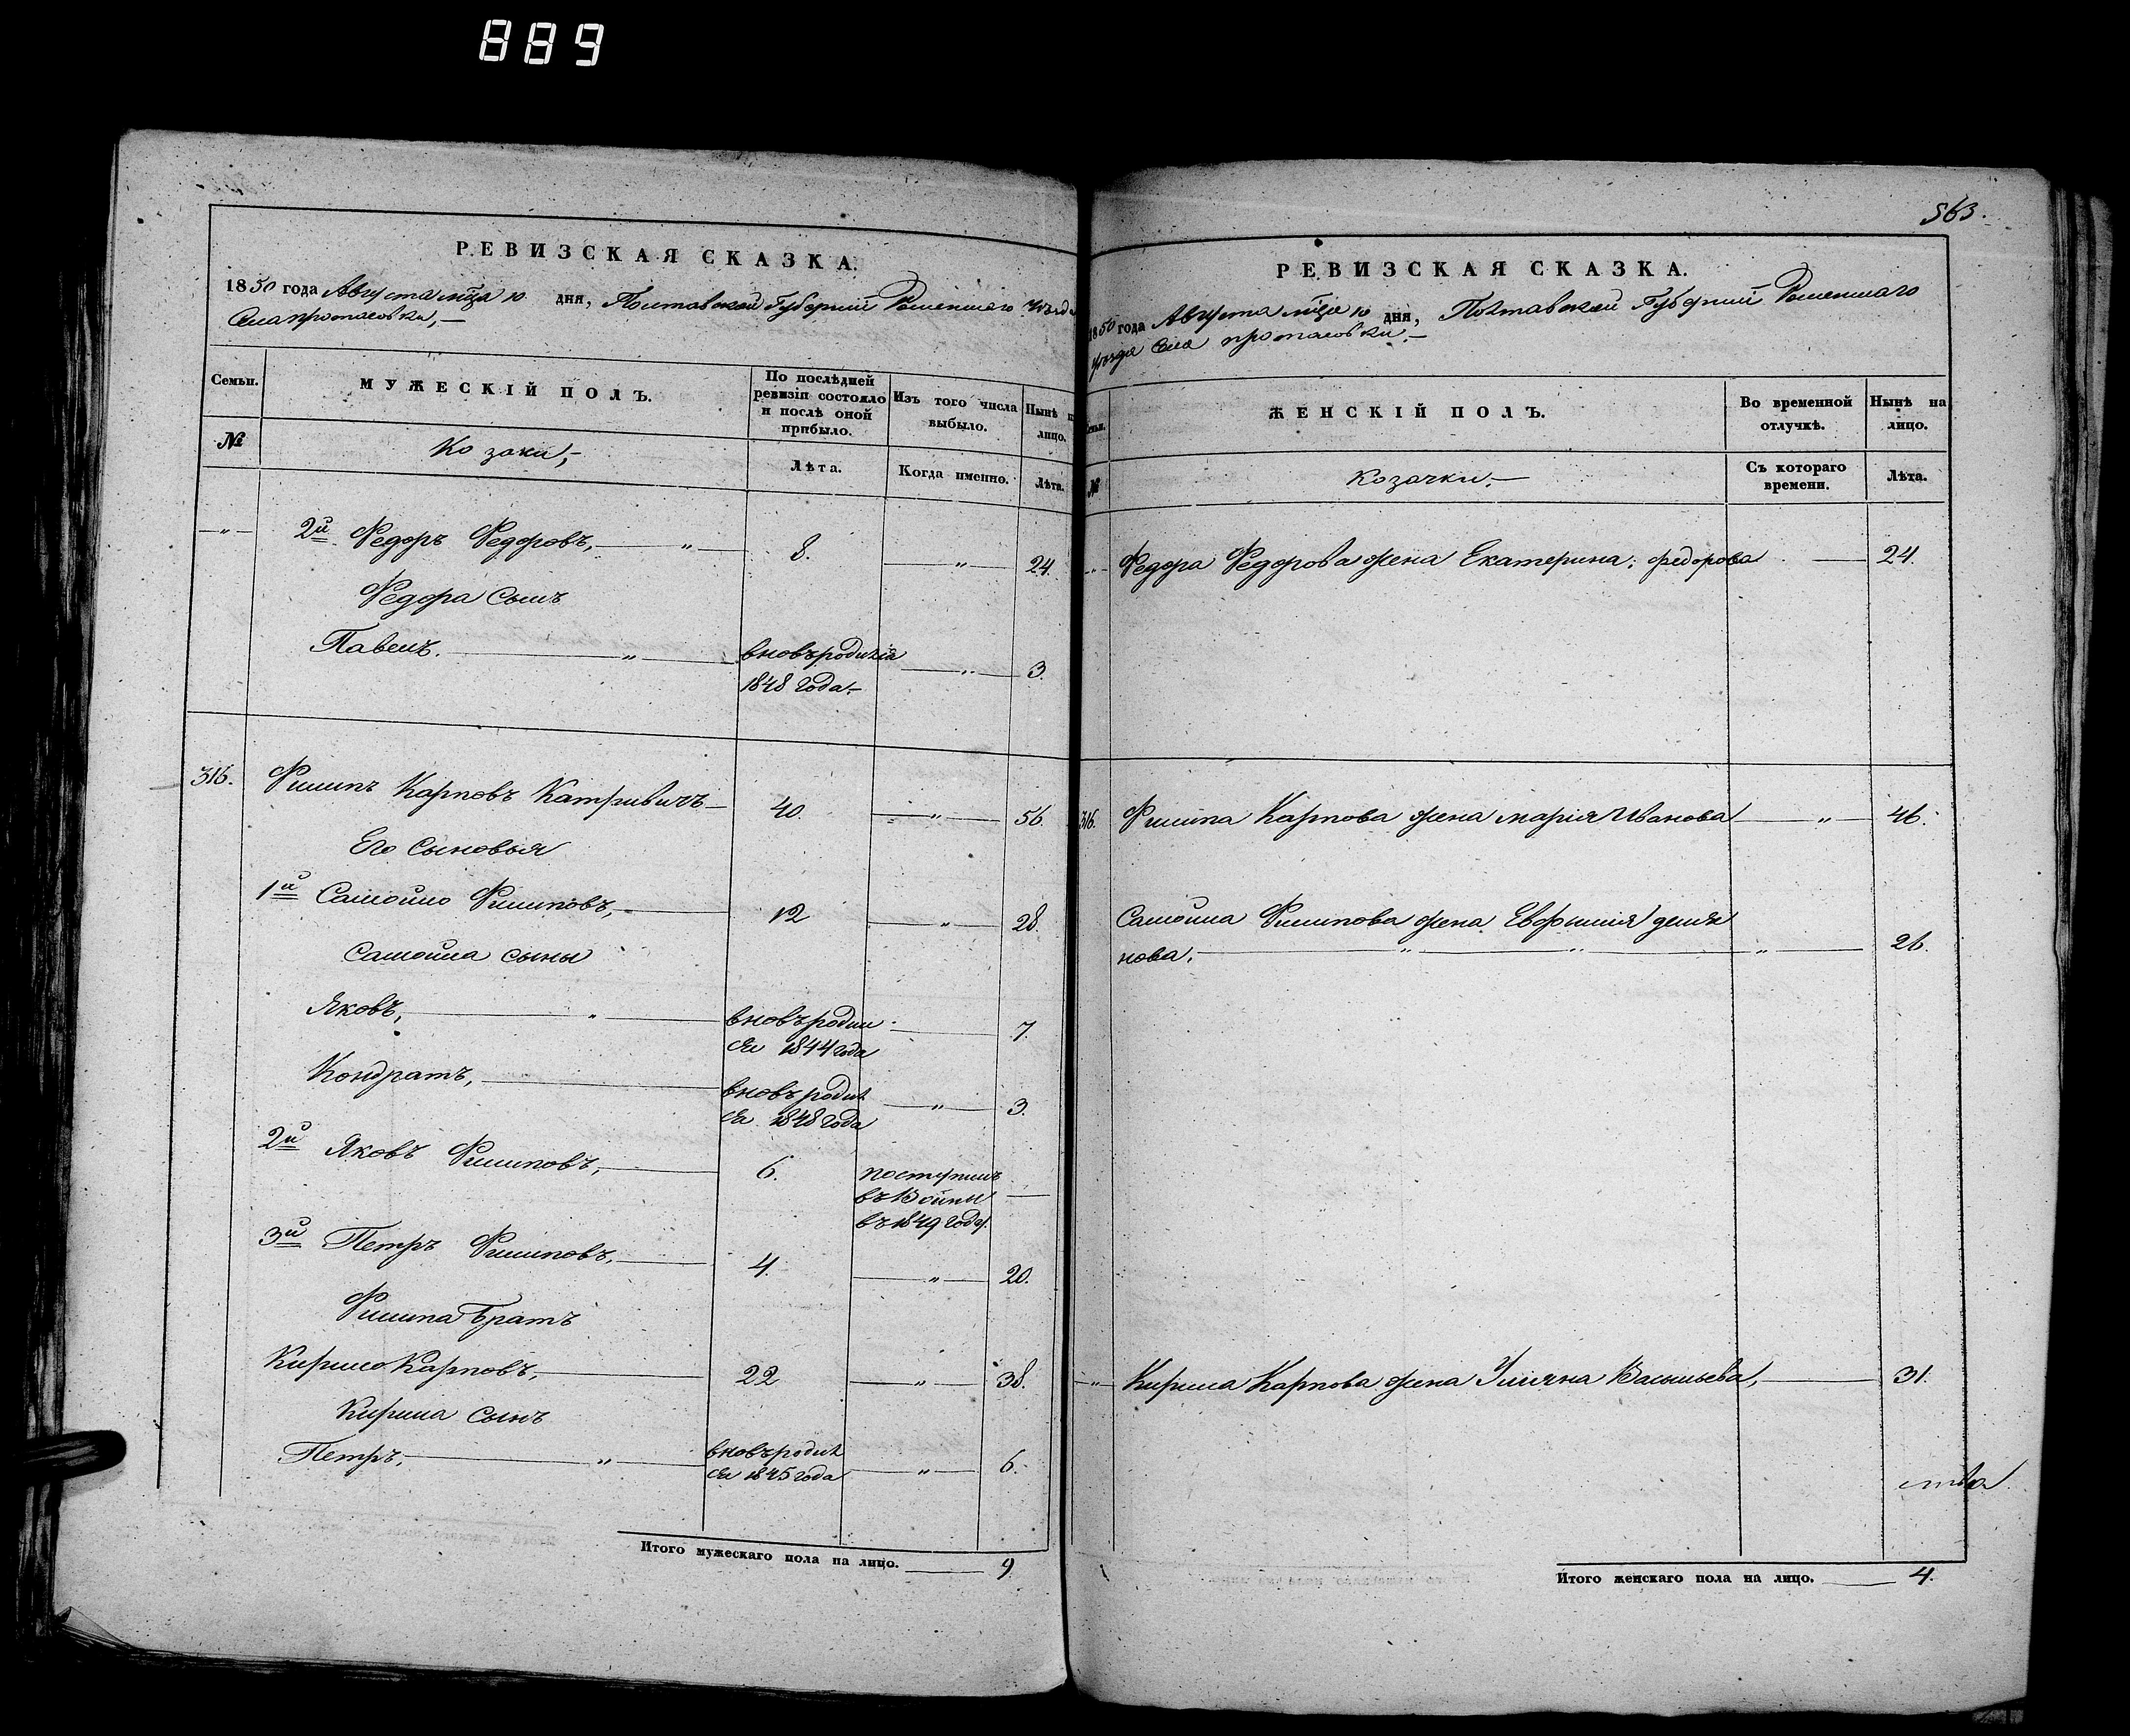 889
РЕВИЗСКАЯ СКАЗКА.
1850 года Августа мца 10 дня, Полтавской Губернии Роменшаго Уезда
Села протасовки,—
Семьи. МУЖЕСКІЙ ПОЛЪ. По послѣдней ревизіи состояло и послѣ оной прибыло. Изъ того числа выбыло. Нынѣ на лицо.
№ Козаки,— Лѣта. Когда именно. Лѣта.
„ 2й Федоръ Федоровъ, „ 8. „ 24.
Федора сынъ
Павелъ. „ вновьродился „ 3.
1848 года.—
316. Филипъ Карповъ Катривичъ 40. „ 56.
Его сыновья
1й Самойло Филиповъ, 12 „ 28.
Самойла сыны
Яковъ, „ вновьродил 7.
ся 1844 года
Кондратъ, вновь родил „ 3.
ся 1848 года
2й Яковъ Филиповъ, 6.
въ 1849 году.
3й Петръ Филиповъ, 4. „ 20.
Филипа братъ
Кирило Карповъ, 22 „ 38.
Кирила сынъ
Петръ, „ вновьродил „ 6.
ся 1845 года
Итого мужескаго пола на лицо. 9.
563.
РЕВИЗСКАЯ СКАЗКА.
1850 года Августа мца 10 дня, Полтавской Губернии Роменшаго
уезда Села протасовки.—
Семьи. ЖЕНСКІЙ ПОЛЪ. Во временной отлучкѣ. Нынѣ на лицо.
№ Козачки.— Съ котораго времени. Лѣта.
„ Федора Федорова жена Екатерина, федорова 24.
316. Филипа Карпова жена марія Иванова „ 46.
Самойла Филипова жена Евфросинія демя
нова. „ „ „ 26.
„ Кирила Карпова жена Уляна Васильева, 31.
Итого женскаго пола на лицо. 4.